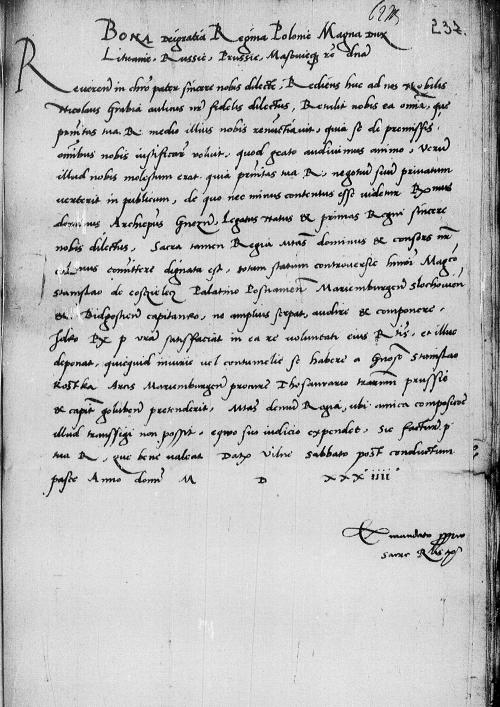 232.
BONA Dei gratia Regina Polonie Magna Dux
Lituanie, Russie, Prussie, Masouieq3 &c dna
Reueren in chro pater sincere nobis dilecte, Rediens huc ad nos Nobilis
Nicolaus Grabia aulicus nr fidelis dilectus, Retulit nobis ea omia, que
prnitas tua R. medio illius nobis renuctiauit, quia se de premissis
omibus nobis iustificare voluit, quod grato audiuimus animo, Verum
illud nobis molestum erat quia prnitas tua R. negotium suum priuatum
verterit in publicum, de quo nec minus contentus esse videtur Rxmus
dominus Archiepus Gneznen, Legatus natus & primas Regni sincere
nobis dilectus, Sacra tamen Regia mtas dominus & consors nr
comittere dignata est, totum statum controuersie
Stanislao de Coscielecz Palatino Posnanien Marienburgen
& Bidgostien capitaneo, ne amplius serpat, audire & componere,
p vra satisfaciat in ea re voluntati eius Rtis, et illuc
deponat, quicquid iniurie vel contumelie se habere a Gnoso Stanislao
Kostka Arcis Marienburgen procure Thesaurario terarum prussie
& capit golubien pretenderit, Mtas demum Regia, ubi amica compositioe
illud transsigi non possit, equo suo iudicio expendet, Sic facture p
tua R, que bene valeat Datx Vilne Sabbato post conductum
pasce Anno domi M D XXX iiii
Ex mandato pprio
Sacre Rlis